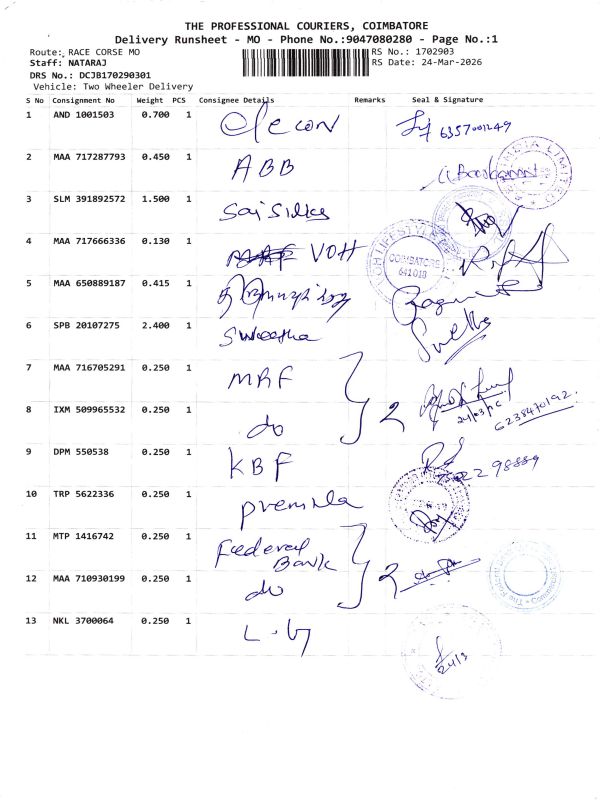 THE PROFESSIONAL COURIERS, COIMBATORE
Delivery Runsheet - MO - Phone No.:9047080280 - Page No.:1
Route: RACE CORSE MO RS No.: 1702903
Staff: NATARAJ RS Date: 24-Mar-2026
DRS No.: DCJB170290301
Vehicle: Two Wheeler Delivery
S No Consignment No Weight PCS Consignee Details Remarks Seal & Signature
1 AND 1001503 0.700 1 Elecon 6357001249
2 MAA 717287793 0.450 1 ABB
3 SLM 391892572 1.500 1 Sai Silks
4 MAA 717666336 0.130 1 VOH
COIMBATORE
641018
5 MAA 650889187 0.415 1
6 SPB 20107275 2.400 1 Swetha
7 MAA 716705291 0.250 1 MRF
8 IXM 509965532 0.250 1 do 2 6238470192
9 DPM 550538 0.250 1 KBF
10 TRP 5622336 0.250 1 Premila
11 MTP 1416742 0.250 1 Federal Bank
12 MAA 710930199 0.250 1 do 2
13 NKL 3700064 0.250 1
24/3